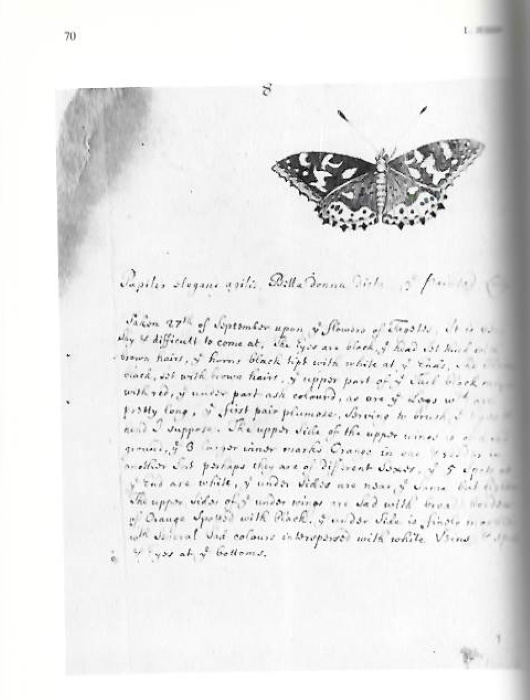 70
8
Papilio elegans agilis. Bella donna dicta. yͤ Painted
Taken 27th of September upon yͤ flowers of It is
shy & difficult to come at, The Eyes are black, yͤ head set thick with
brown hairs, yͤ horns black tipt with white at yͤ Ends, The
black, set with brown hairs, yͤ upper part of yͤ black
with red, yͤ under part ash coloured, so are yͤ Legs wch are
pretty long, yͤ first pair plumose, serving to brush
head I suppose. The upper side of the upper wings is of a
ground, yͤ 3 larger inner marks Orange in one & redder in
another but perhaps they are of different Sexes, yͤ 5 spots at
yͤ End are white, yͤ under sides are near yͤ same but
The upper sides of yͤ under wings are Sad with broad
of Orange Spotted with Black. yͤ under Side is finely
wth several Sad colours interspersed with white Veins
Eyes at yͤ bottoms.